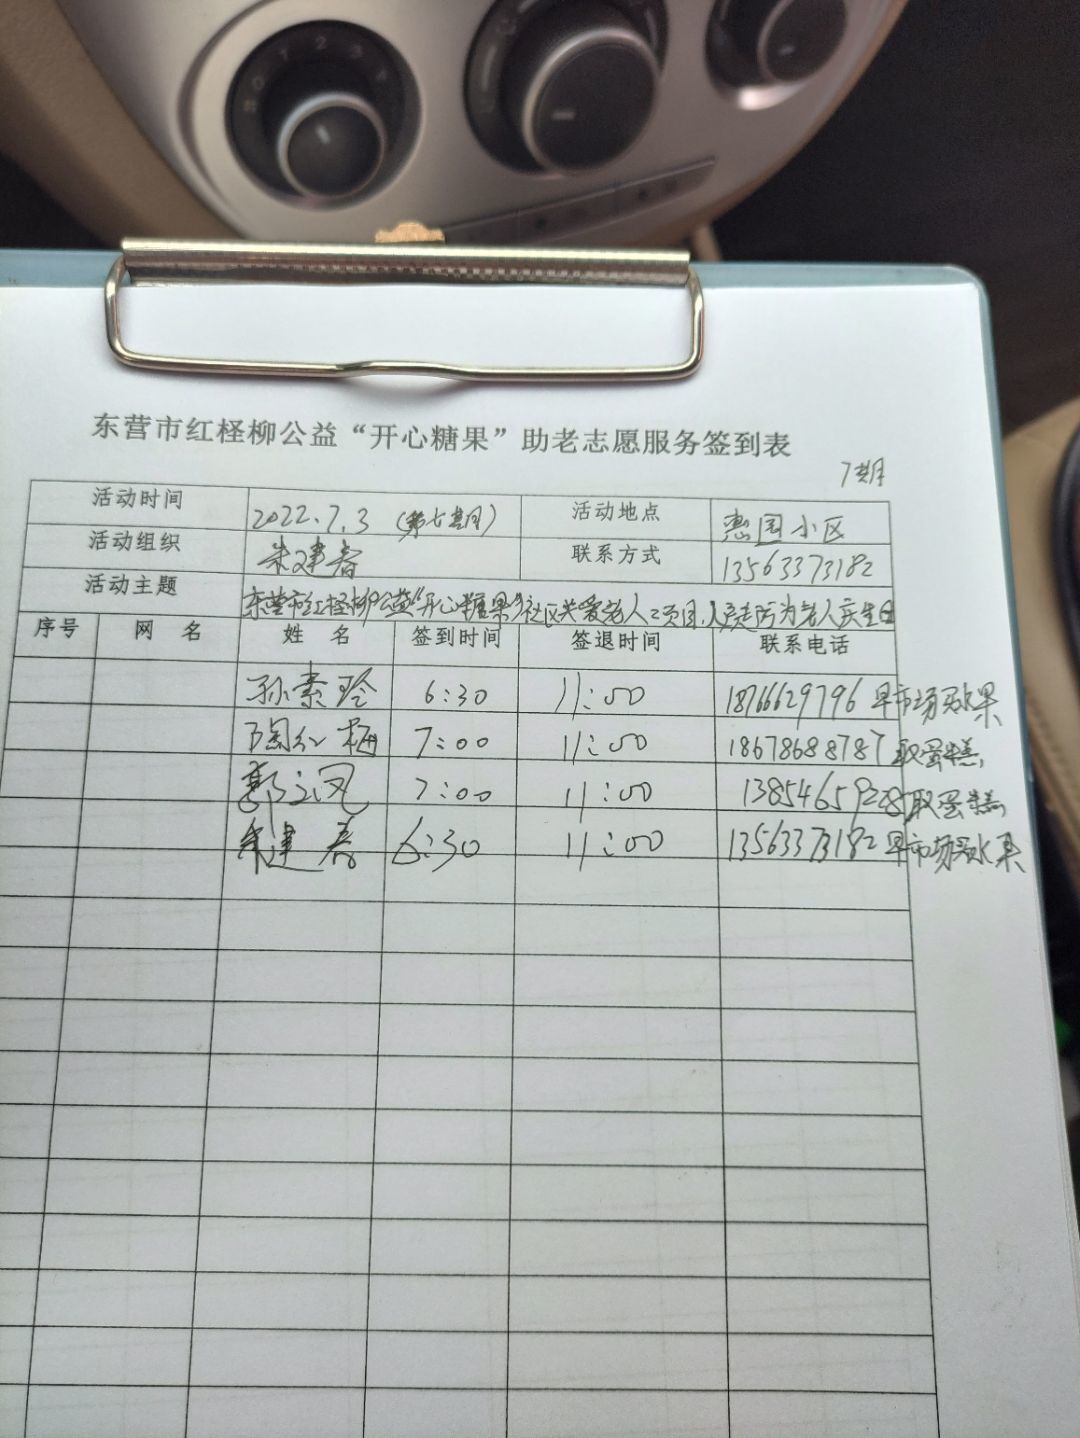 东营市红柽柳公益“开心糖果”助老志愿服务签到表
7期
活动时间 2022.7.3 (第七期) 活动地点 惠园小区
活动组织 朱建春 联系方式 13563373182
活动主题 东营市红柽柳公益“开心糖果”社区关爱老人 项目 为老人庆生日
序号 网名 姓名 签到时间 签退时间 联系电话
孙素玲 6:30 11:00 18766629796 早市场买水果
陶红梅 7:00 11:00 18678688787 取蛋糕
郭立凤 7:00 11:00 13854659228 取蛋糕
朱建春 6:30 11:00 13563373182 早市场买水果